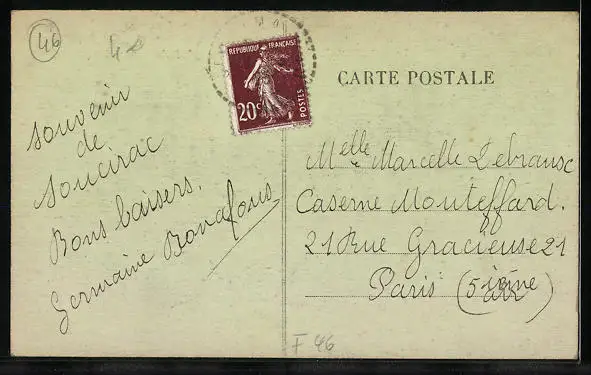 46
48
RÉPUBLIQUE FRANÇAISE
20c
POSTES
CARTE POSTALE
souvenir
de
Soucirac
Bons baisers.
Germaine Bonafous
Melle Marcelle Lebransc
Caserne Mouteffard.
21 Rue Gracieuse 21
Paris (5ième)
F 46